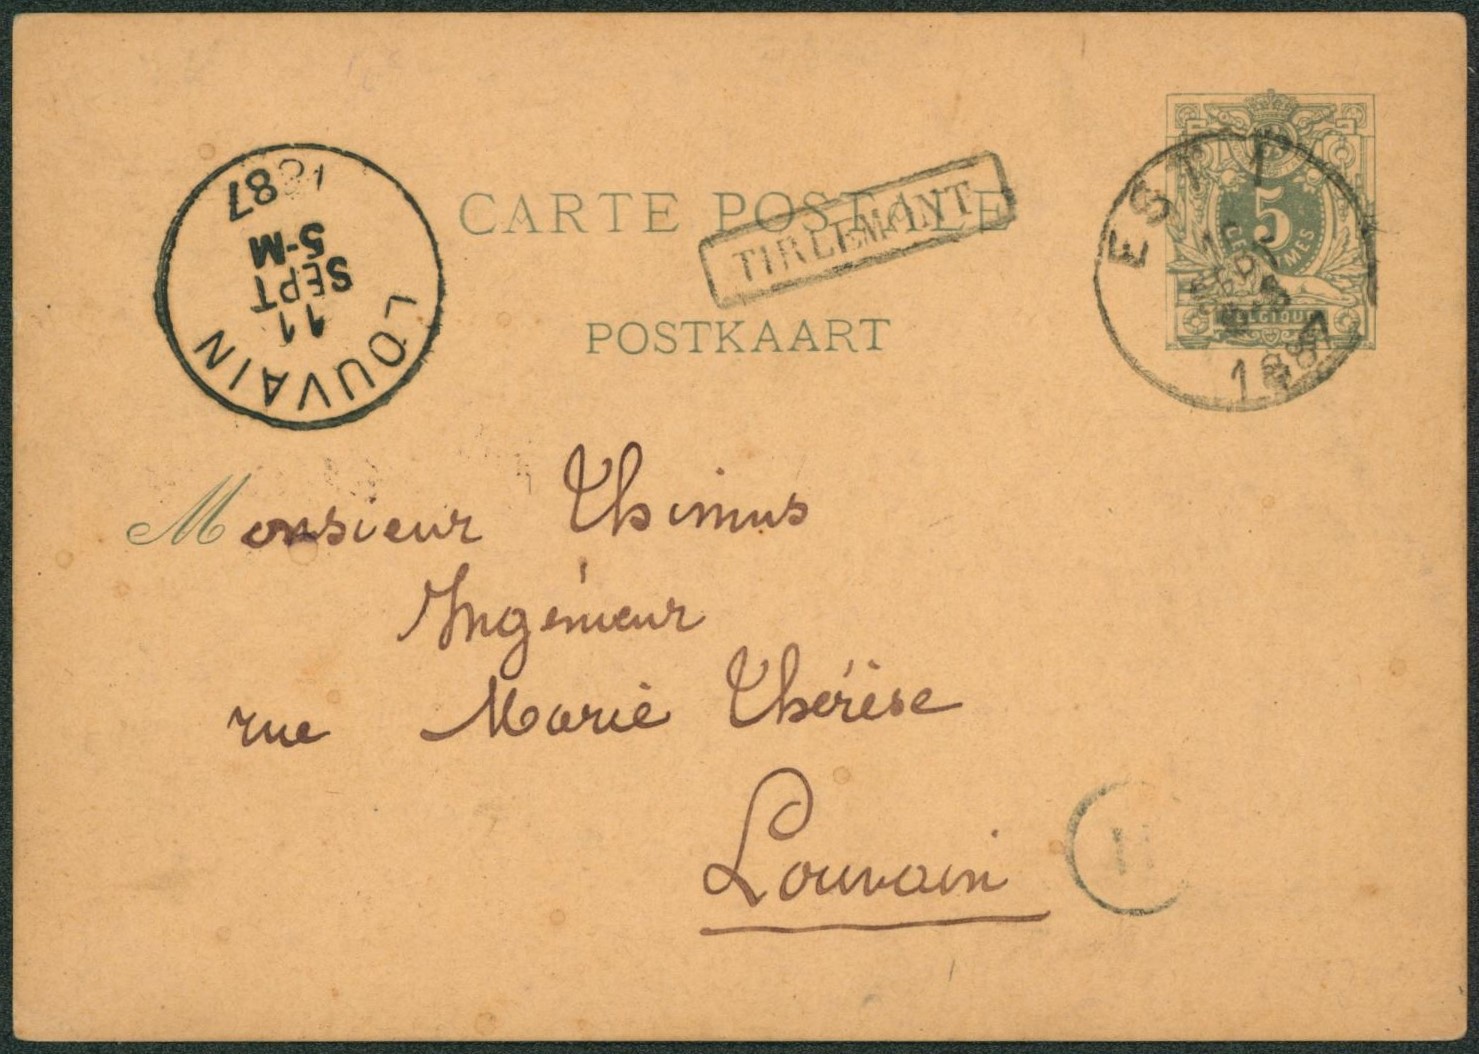 CARTE POSTALE
TIRLEMONT
POSTKAART
LOUVAIN
11
SEPT
5-M
1887
EST 1
SEPT
1887
5
CENTIMES
BELGIQUE
Monsieur Thimus
Ingénieur
rue Marie Thérèse
Louvain